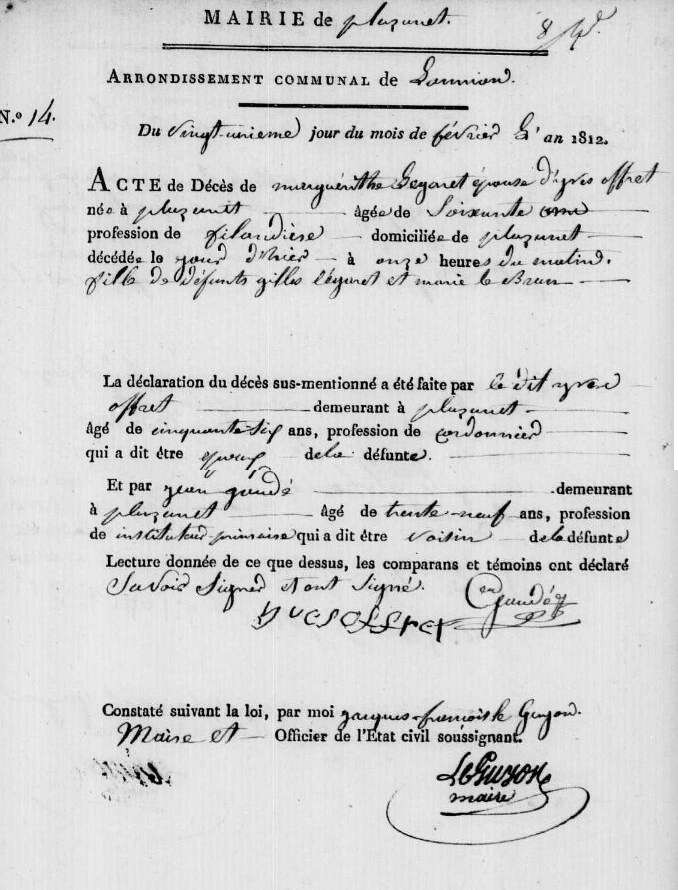 MAIRIE de pluzunet.
ARRONDISSEMENT COMMUNAL de Lannion.
N.º 14.
Du vingt-unieme jour du mois de février L'an 1812.
ACTE de Décès de marguérithe Legaret épouse d'yves offret
née à pluzunet âgée de Soixante ans
profession de filandière domiciliée de pluzunet
décédée le jour d'hier à onze heures du matin.
fille de défunts gilles légaret et marie le Brun
La déclaration du décès sus-mentionné a été faite par le dit yves
offret demeurant à pluzunet
âgé de cinquante-six ans, profession de cordonnier
qui a dit être époux de la défunte.
Et par jean gaudé demeurant
à pluzunet âgé de trente-neuf ans, profession
de instituteur primaire qui a dit être voisin de la défunte
Lecture donnée de ce que dessus, les comparans et témoins ont déclaré
Savoir Signer et ont signé.
yves offret gaudé
Constaté suivant la loi, par moi jacques-françois le Guyon.
Maire et Officier de l'Etat civil soussignant.
LeGuyon
maire